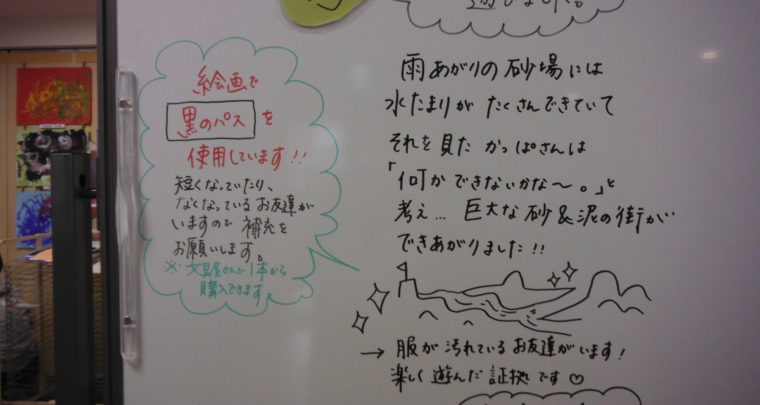 絵画で
黒のパス を
使用しています!!
短くなっていたり、
なくなっているお友達が
いますので 補充を
お願いします。
※文具屋さんで1本から
購入できます。
雨あがりの 砂場には
水たまりが たくさんできていて
それを見た かっぱさんは
「何かできないかな〜。」と
考え… 巨大な 砂&泥の街が
できあがりました!!
→ 服が 汚れているお友達がいます!
楽しく 遊んだ 証拠です♡